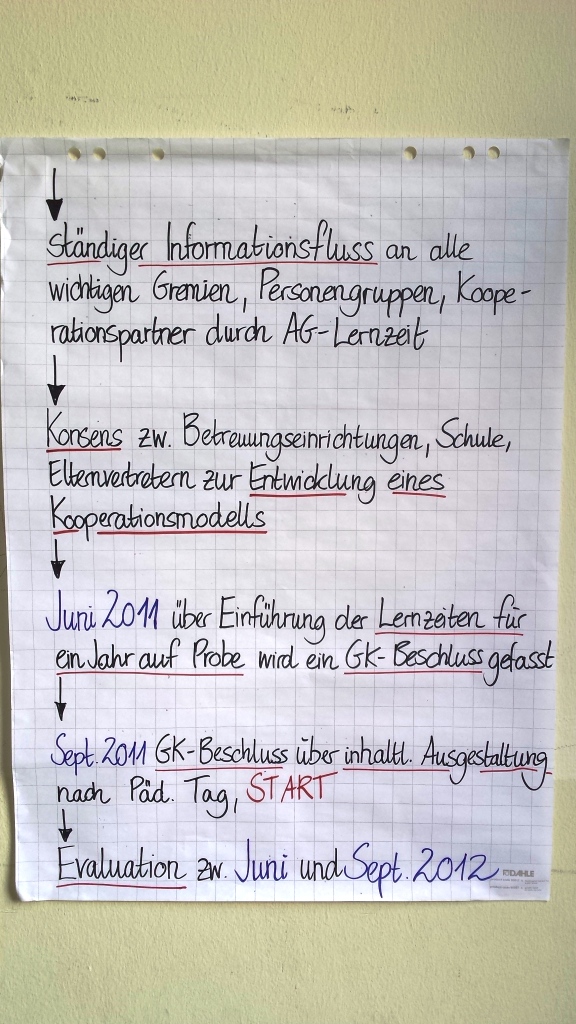 Ständiger Informationsfluss an alle
wichtigen Gremien, Personengruppen, Koope-
rationspartner durch AG-Lernzeit
Konsens zw. Betreuungseinrichtungen, Schule,
Elternvertretern zur Entwicklung eines
Kooperationsmodells
Juni 2011 über Einführung der Lernzeiten für
ein Jahr auf Probe wird ein GK-Beschluss gefasst
Sept. 2011 GK-Beschluss über inhaltl. Ausgestaltung
nach Päd. Tag, START
Evaluation zw. Juni und Sept. 2012
DAHLE